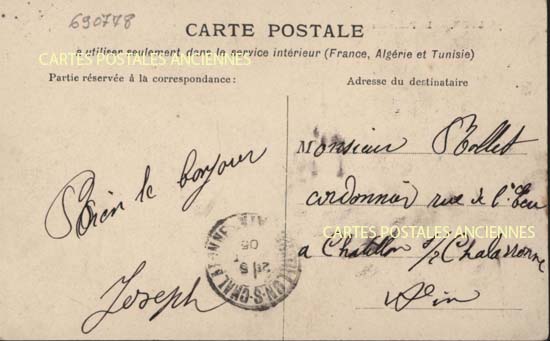 690778
CARTE POSTALE
à utiliser seulement dans le service intérieur (France, Algérie et Tunisie)
CARTES POSTALES ANCIENNES
Partie réservée à la correspondance:
Adresse du destinataire
CARTES POSTALES ANCIENNES
Bien le bonjour
Joseph
Monsieur Mollet
cordonnier rue de l'
CARTES POSTALES ANCIENNES
a Chatillon s/ Chalaronne
Ain
CHATILLON-S-CHALARONNE
AIN
05